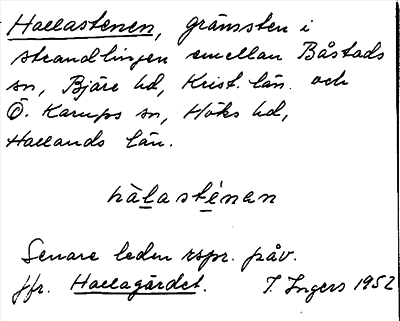 Hallastenen, gränssten i
strandlinjen emellan Båstads
sn, Bjäre hd, Krist. län. och
Ö. Karups sn, Höks hd,
Hallands län.
hàlasténan
Senare leden rspr. påv.
Jfr. Hallagärdet. I. Ingers 1952